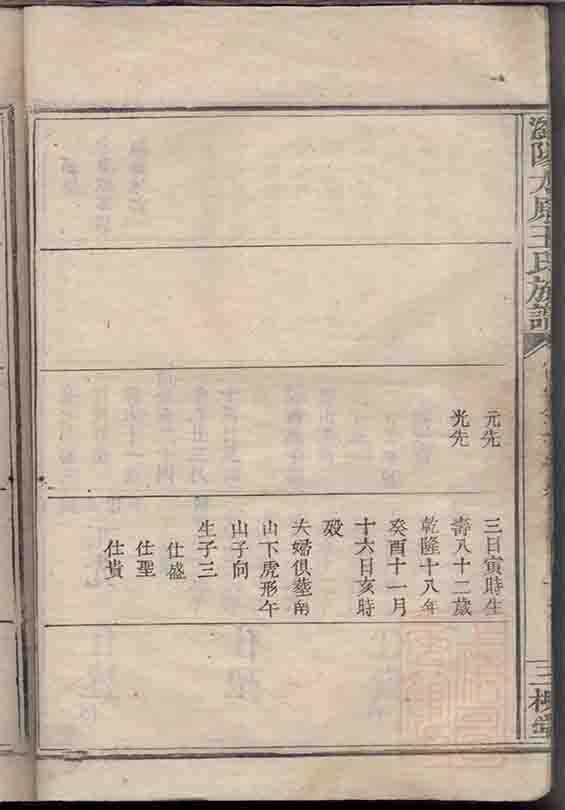 陽太原王氏族譜
三槐堂
元先
光先
三日寅時生
壽八十二歲
乾隆十八年
癸酉十一月
十六日亥時
歿
夫婦俱塟南
山下虎形午
山子向
生子三
仕盛
仕聖
仕貴